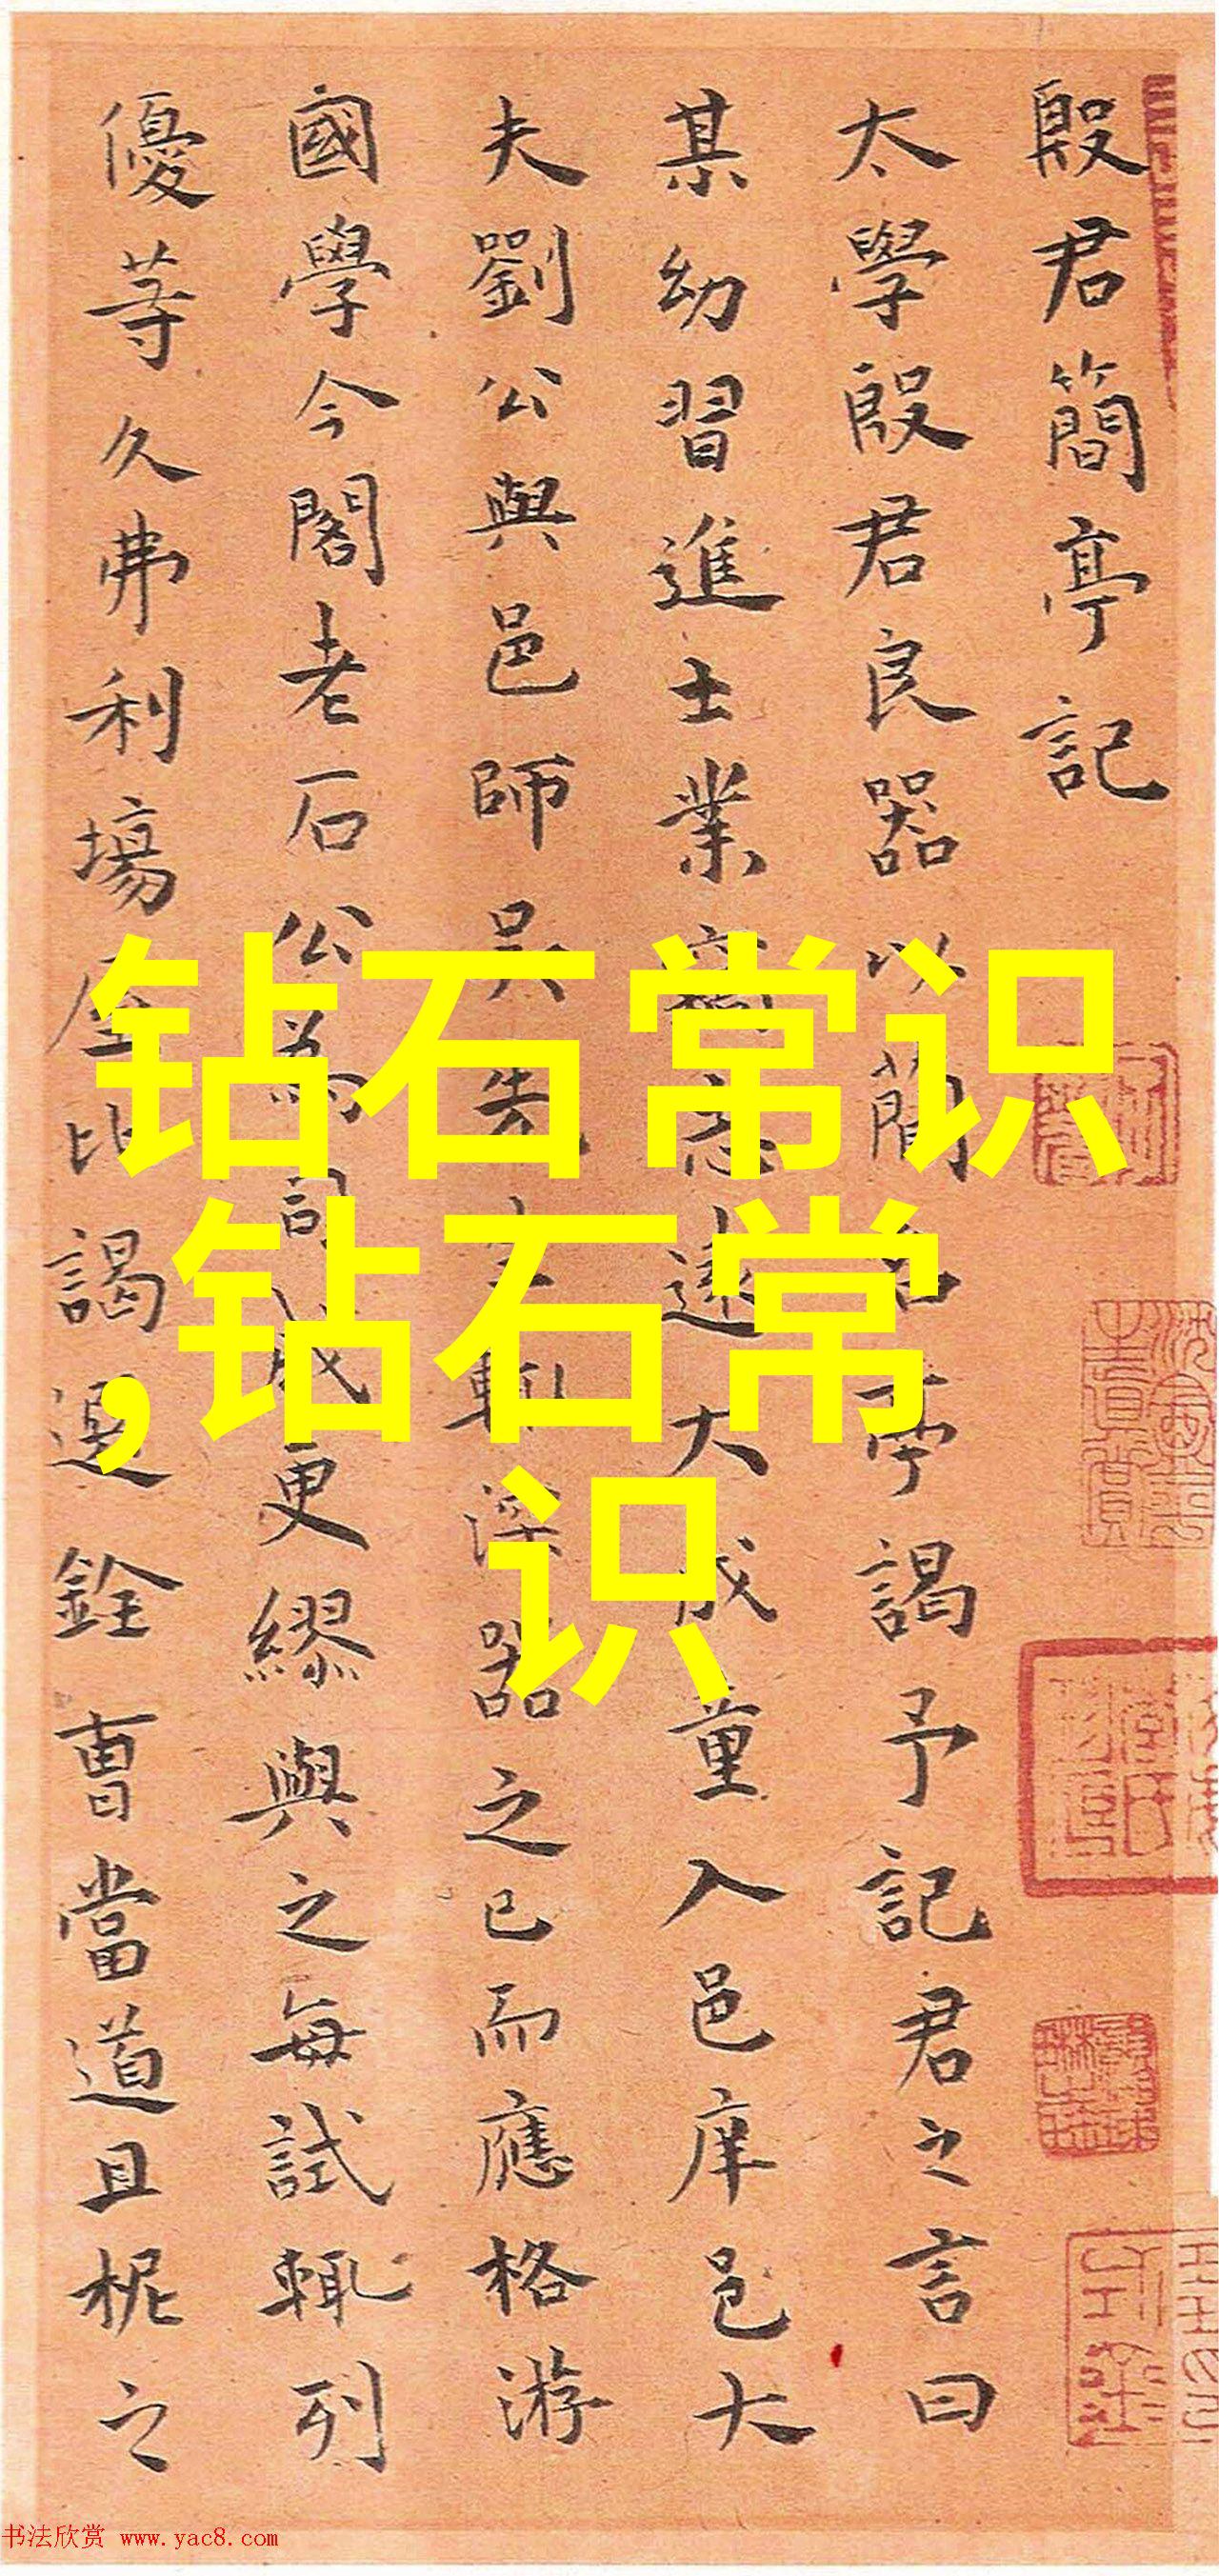 殷君簡亭記
太學殷君良器以簡名亭謁予記君之言曰
某幼習進士業竊志遠大成童入邑庠邑大
夫劉公與邑師吳先生輒深器之已而應格游
國學今閣老石公為司成更繆與之每試輒列
優等久弗利場屋比謁選銓曹當道且柅之
钻石常识
,钻石常
识
书法欣赏 www.yac8.com